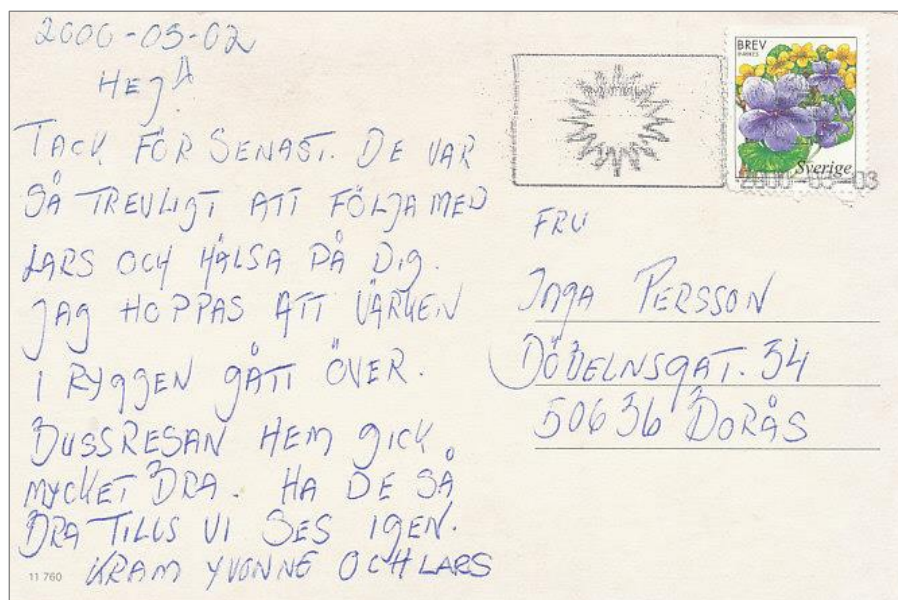 2000-05-02
HEJ!
TACK FÖR SENAST. DE VAR
SÅ TREVLIGT ATT FÖLJA MED
LARS OCH HÄLSA PÅ DIG.
JAG HOPPAS ATT VÄRKEN
I RYGGEN GÅTT ÖVER.
BUSSRESAN HEM GICK
MYCKET BRA. HA DE SÅ
BRA TILLS VI SES IGEN.
KRAM YVONNE OCH LARS
11 760
BREV
INRIKES
Sverige
FRU
INGA PERSSON
DÖBELNSGAT. 34
50636 BORÅS